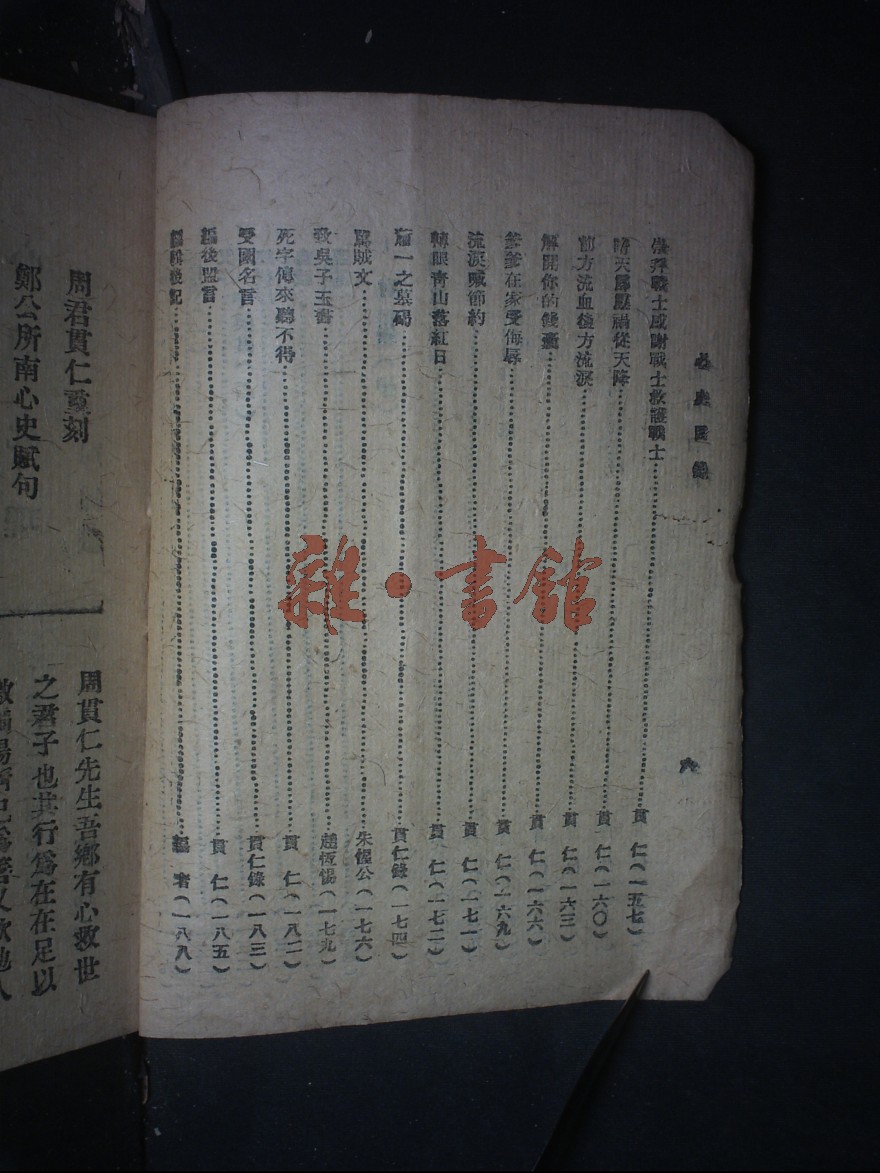 心史目錄
六
崇拜戰士感謝戰士救護戰士……貫 仁(一五七)
晴天霹靂禍從天降……貫 仁(一六〇)
前方流血後方流淚……貫 仁(一六三)
解開你的錢囊……貫 仁(一六六)
爹爹在家受侮辱……貫 仁(一六九)
流淚喊節約……貫 仁(一七一)
轉眼青山落紅日……貫 仁(一七二)
蕭一之墓碣……貫仁錄(一七四)
罵賊文……朱惺公(一七六)
致吳子玉書……趙恆惕(一七九)
死字傳來聽不得……貫 仁(一八二)
愛國名言……貫仁錄(一八三)
編後盟言……貫 仁(一八五)
編餘後記……編 者(一八八)
周君貫仁重刻
鄭公所南心史賦句
周貫仁先生吾鄉有心救世
之君子也其行爲在在足以
雜·書館